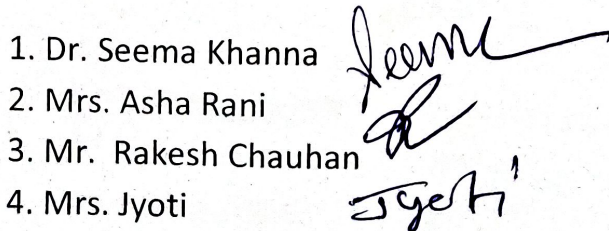 1. Dr. Seema Khanna Seema
2. Mrs. Asha Rani
3. Mr. Rakesh Chauhan
4. Mrs. Jyoti Jyoti